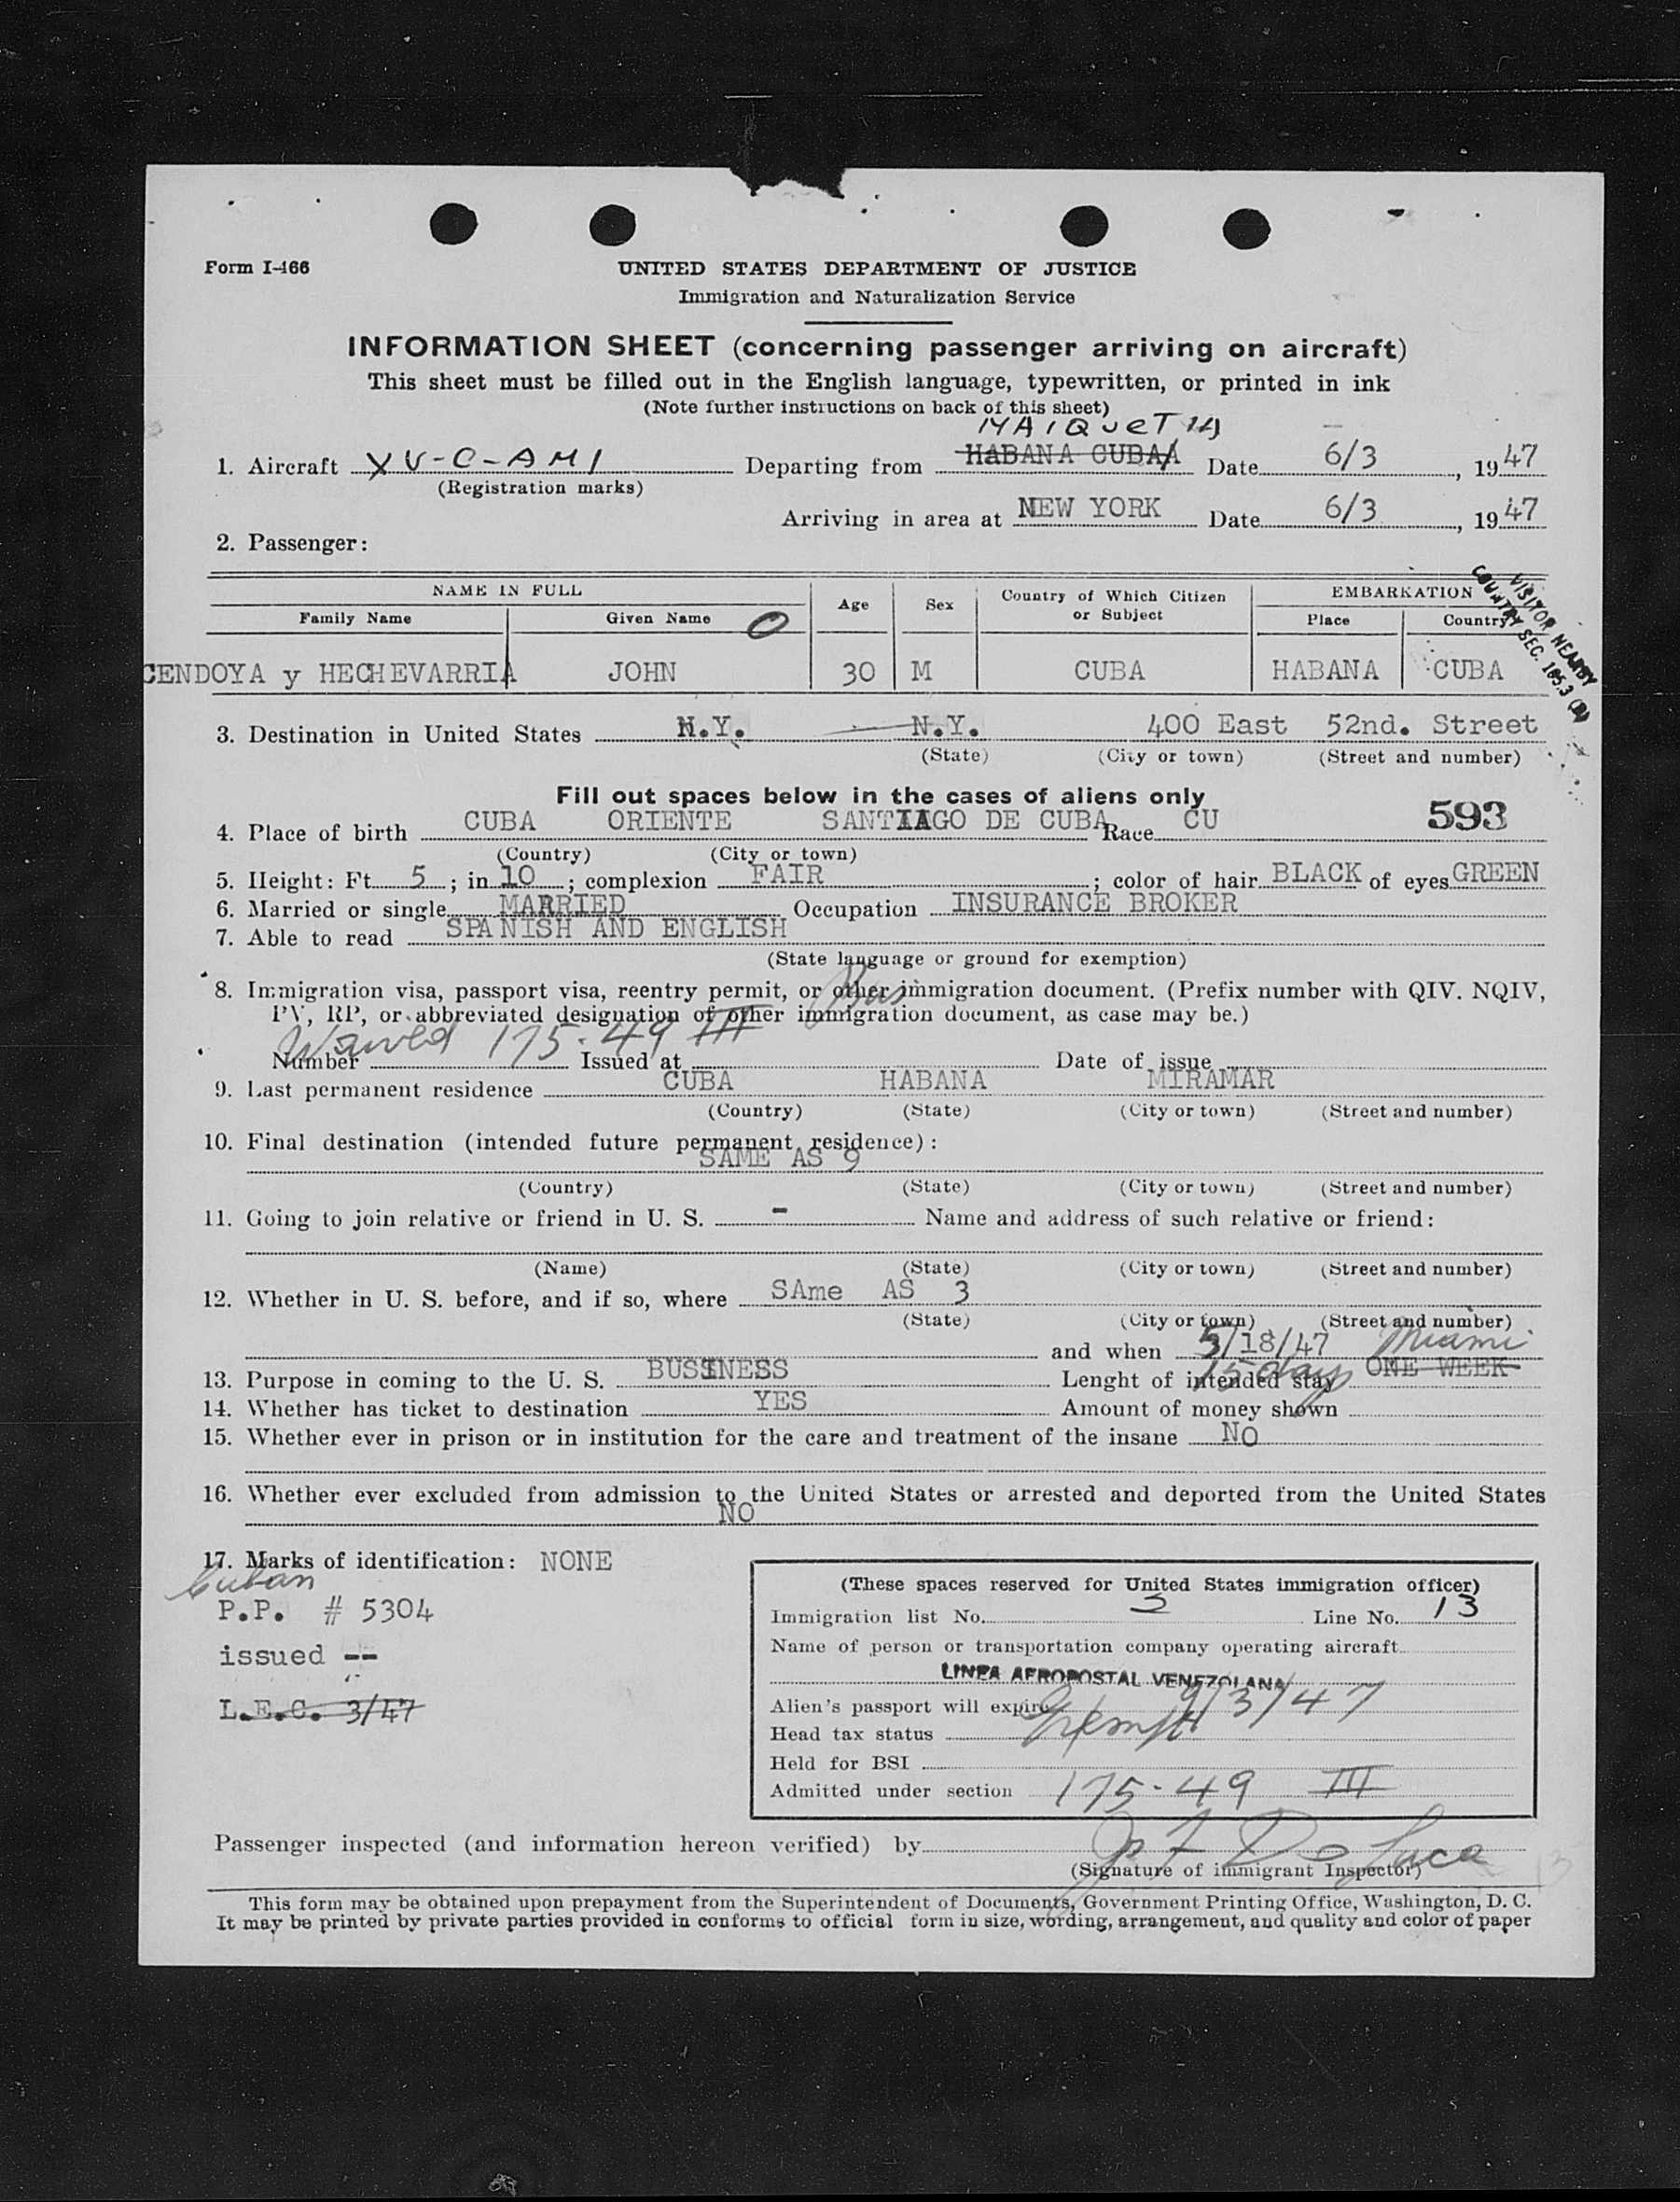 Form I-466
UNITED STATES DEPARTMENT OF JUSTICE
Immigration and Naturalization Service
INFORMATION SHEET (concerning passenger arriving on aircraft)
This sheet must be filled out in the English language, typewritten, or printed in ink
(Note further instructions on back of this sheet)
MAIQUETIA
1. Aircraft YV-C-AMI Departing from HABANA CUBA Date 6/3, 1947
(Registration marks)
Arriving in area at NEW YORK Date 6/3, 1947
2. Passenger:
NAME IN FULL Age Sex Country of Which Citizen or Subject EMBARKATION
Family Name Given Name Place Country
VISITOR NEARBY
COUNTRY SEC.
CENDOYA y HECHEVARRIA JOHN 30 M CUBA HABANA CUBA
3. Destination in United States N.Y. N.Y. 400 East 52nd. Street
(State) (City or town) (Street and number)
Fill out spaces below in the cases of aliens only
593
4. Place of birth CUBA ORIENTE SANTIAGO DE CUBA Race CU
(Country) (City or town)
5. Height: Ft. 5; in 10; complexion FAIR; color of hair BLACK of eyes GREEN
6. Married or single MARRIED Occupation INSURANCE BROKER
7. Able to read SPANISH AND ENGLISH
(State language or ground for exemption)
8. Immigration visa, passport visa, reentry permit, or other immigration document. (Prefix number with QIV. NQIV,
PV, RP, or abbreviated designation of other immigration document, as case may be.)
Bus
Waived 175-49 III
Number Issued at Date of issue
9. Last permanent residence CUBA HABANA MIRAMAR
(Country) (State) (City or town) (Street and number)
10. Final destination (intended future permanent residence):
SAME AS 9
(Country) (State) (City or town) (Street and number)
11. Going to join relative or friend in U. S. - Name and address of such relative or friend:
(Name) (State) (City or town) (Street and number)
12. Whether in U. S. before, and if so, where SAme AS 3
(State) (City or town) (Street and number)
and when 5/18/47 Miami
13. Purpose in coming to the U. S. BUSINESS Lenght of intended stay 15 days ONE WEEK
14. Whether has ticket to destination YES Amount of money shown
15. Whether ever in prison or in institution for the care and treatment of the insane NO
16. Whether ever excluded from admission to the United States or arrested and deported from the United States
NO
17. Marks of identification: NONE
Cuban
P.P. # 5304
issued --
L.E.C. 3/47
(These spaces reserved for United States immigration officer)
Immigration list No. 2 Line No. 13
Name of person or transportation company operating aircraft
LINEA AEROPOSTAL VENEZOLANA
Alien's passport will expire 9/3/47
Head tax status Exempt
Held for BSI
Admitted under section 175-49 III
Passenger inspected (and information hereon verified) by De Luca
(Signature of immigrant Inspector)
This form may be obtained upon prepayment from the Superintendent of Documents, Government Printing Office, Washington, D. C.
It may be printed by private parties provided in conforms to official form in size, wording, arrangement, and quality and color of paper